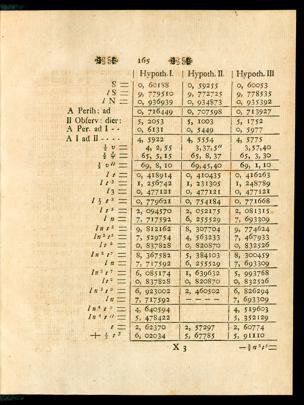 165
Hypoth. I. Hypoth. II. Hypoth. III
S = 0, 60188 0, 59255 0, 60053
l S = 9, 779510 9, 772725 9, 778535
l N = 0, 936939 0, 934873 0, 935392
A Perih: ad 0, 716449 0, 707598 0, 713927
II Observ: dier: 5, 2053 5, 1003 5, 1752
A Per. ad I - - 0, 6131 0, 5449 0, 5977
A I ad II - - - - 4, 5922 4, 5554 4, 5775
= 4, 2, 55 3,37,5" 3,57,40
= 65, 5, 15 65, 8, 37 65, 3, 30
= 69, 8, 10 69,45,40 69, 1, 10
l t = 0, 418914 0, 410435 0, 416263
l t³ = 1, 256742 1, 231305 1, 248789
l 3 = 0, 477121 0, 477121 0, 477121
= 0, 779621 0, 754184 0, 771668
= 2, 094570 2, 052175 2, 081315
l n = 7, 717592 6, 255529 7, 693309
= 9, 812162 8, 307704 9, 774624
= 7, 529754 4, 563233 7, 467933
l t² = 0, 837828 0, 820870 0, 832526
= 8, 367582 5, 384103 8, 300459
l n = 7, 717592 6, 255529 7, 693309
= 6, 085174 1, 639632 5, 993768
l t² = 0, 837828 0, 820870 0, 832526
= 6, 923002 2, 460502 6, 826294
l n = 7, 717592 - - - - 7, 693309
= 4, 640594 4, 519603
= 5, 478422 5, 352129
t = 2, 62370 2, 57297 2, 60774
+ ⅓ t³ = 6, 02034 5, 67785 5, 91110
X 3